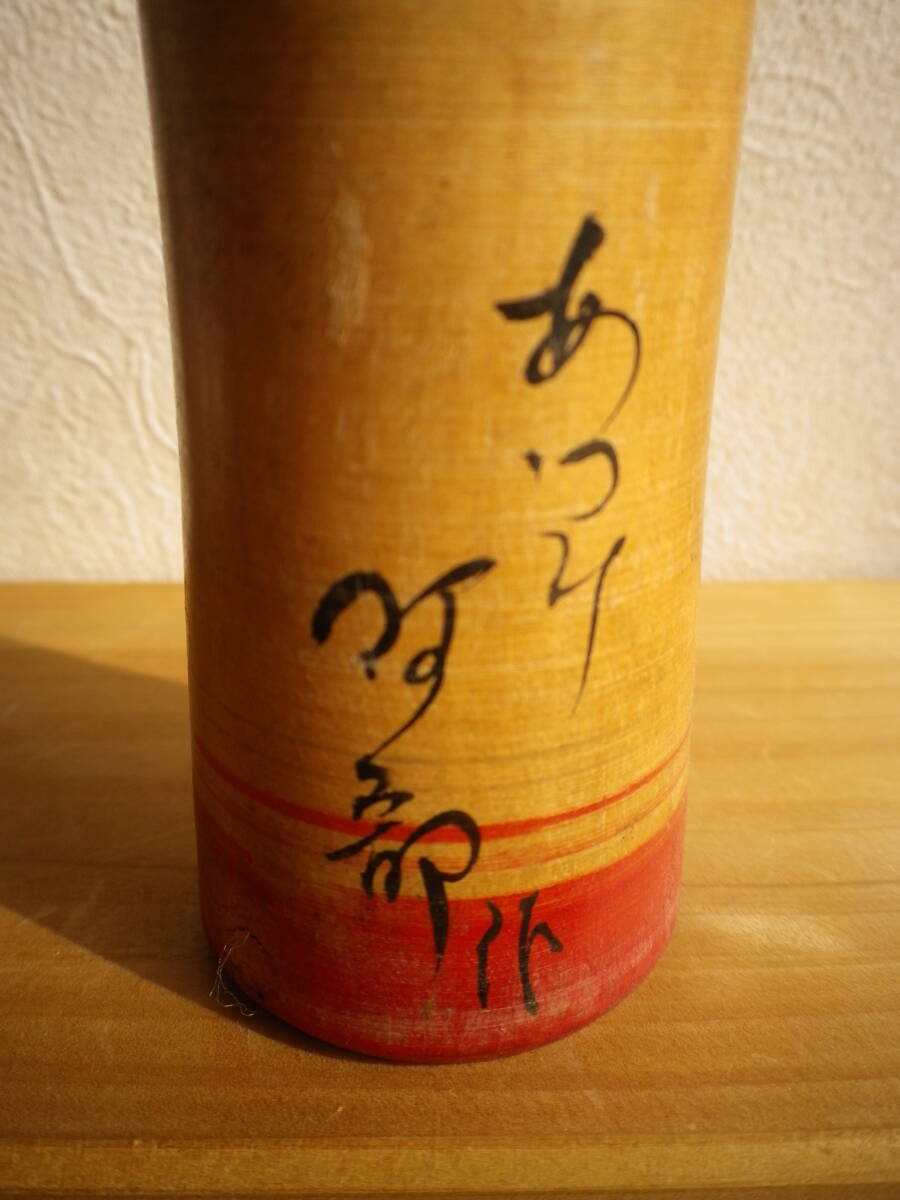 あつみ
阿部作